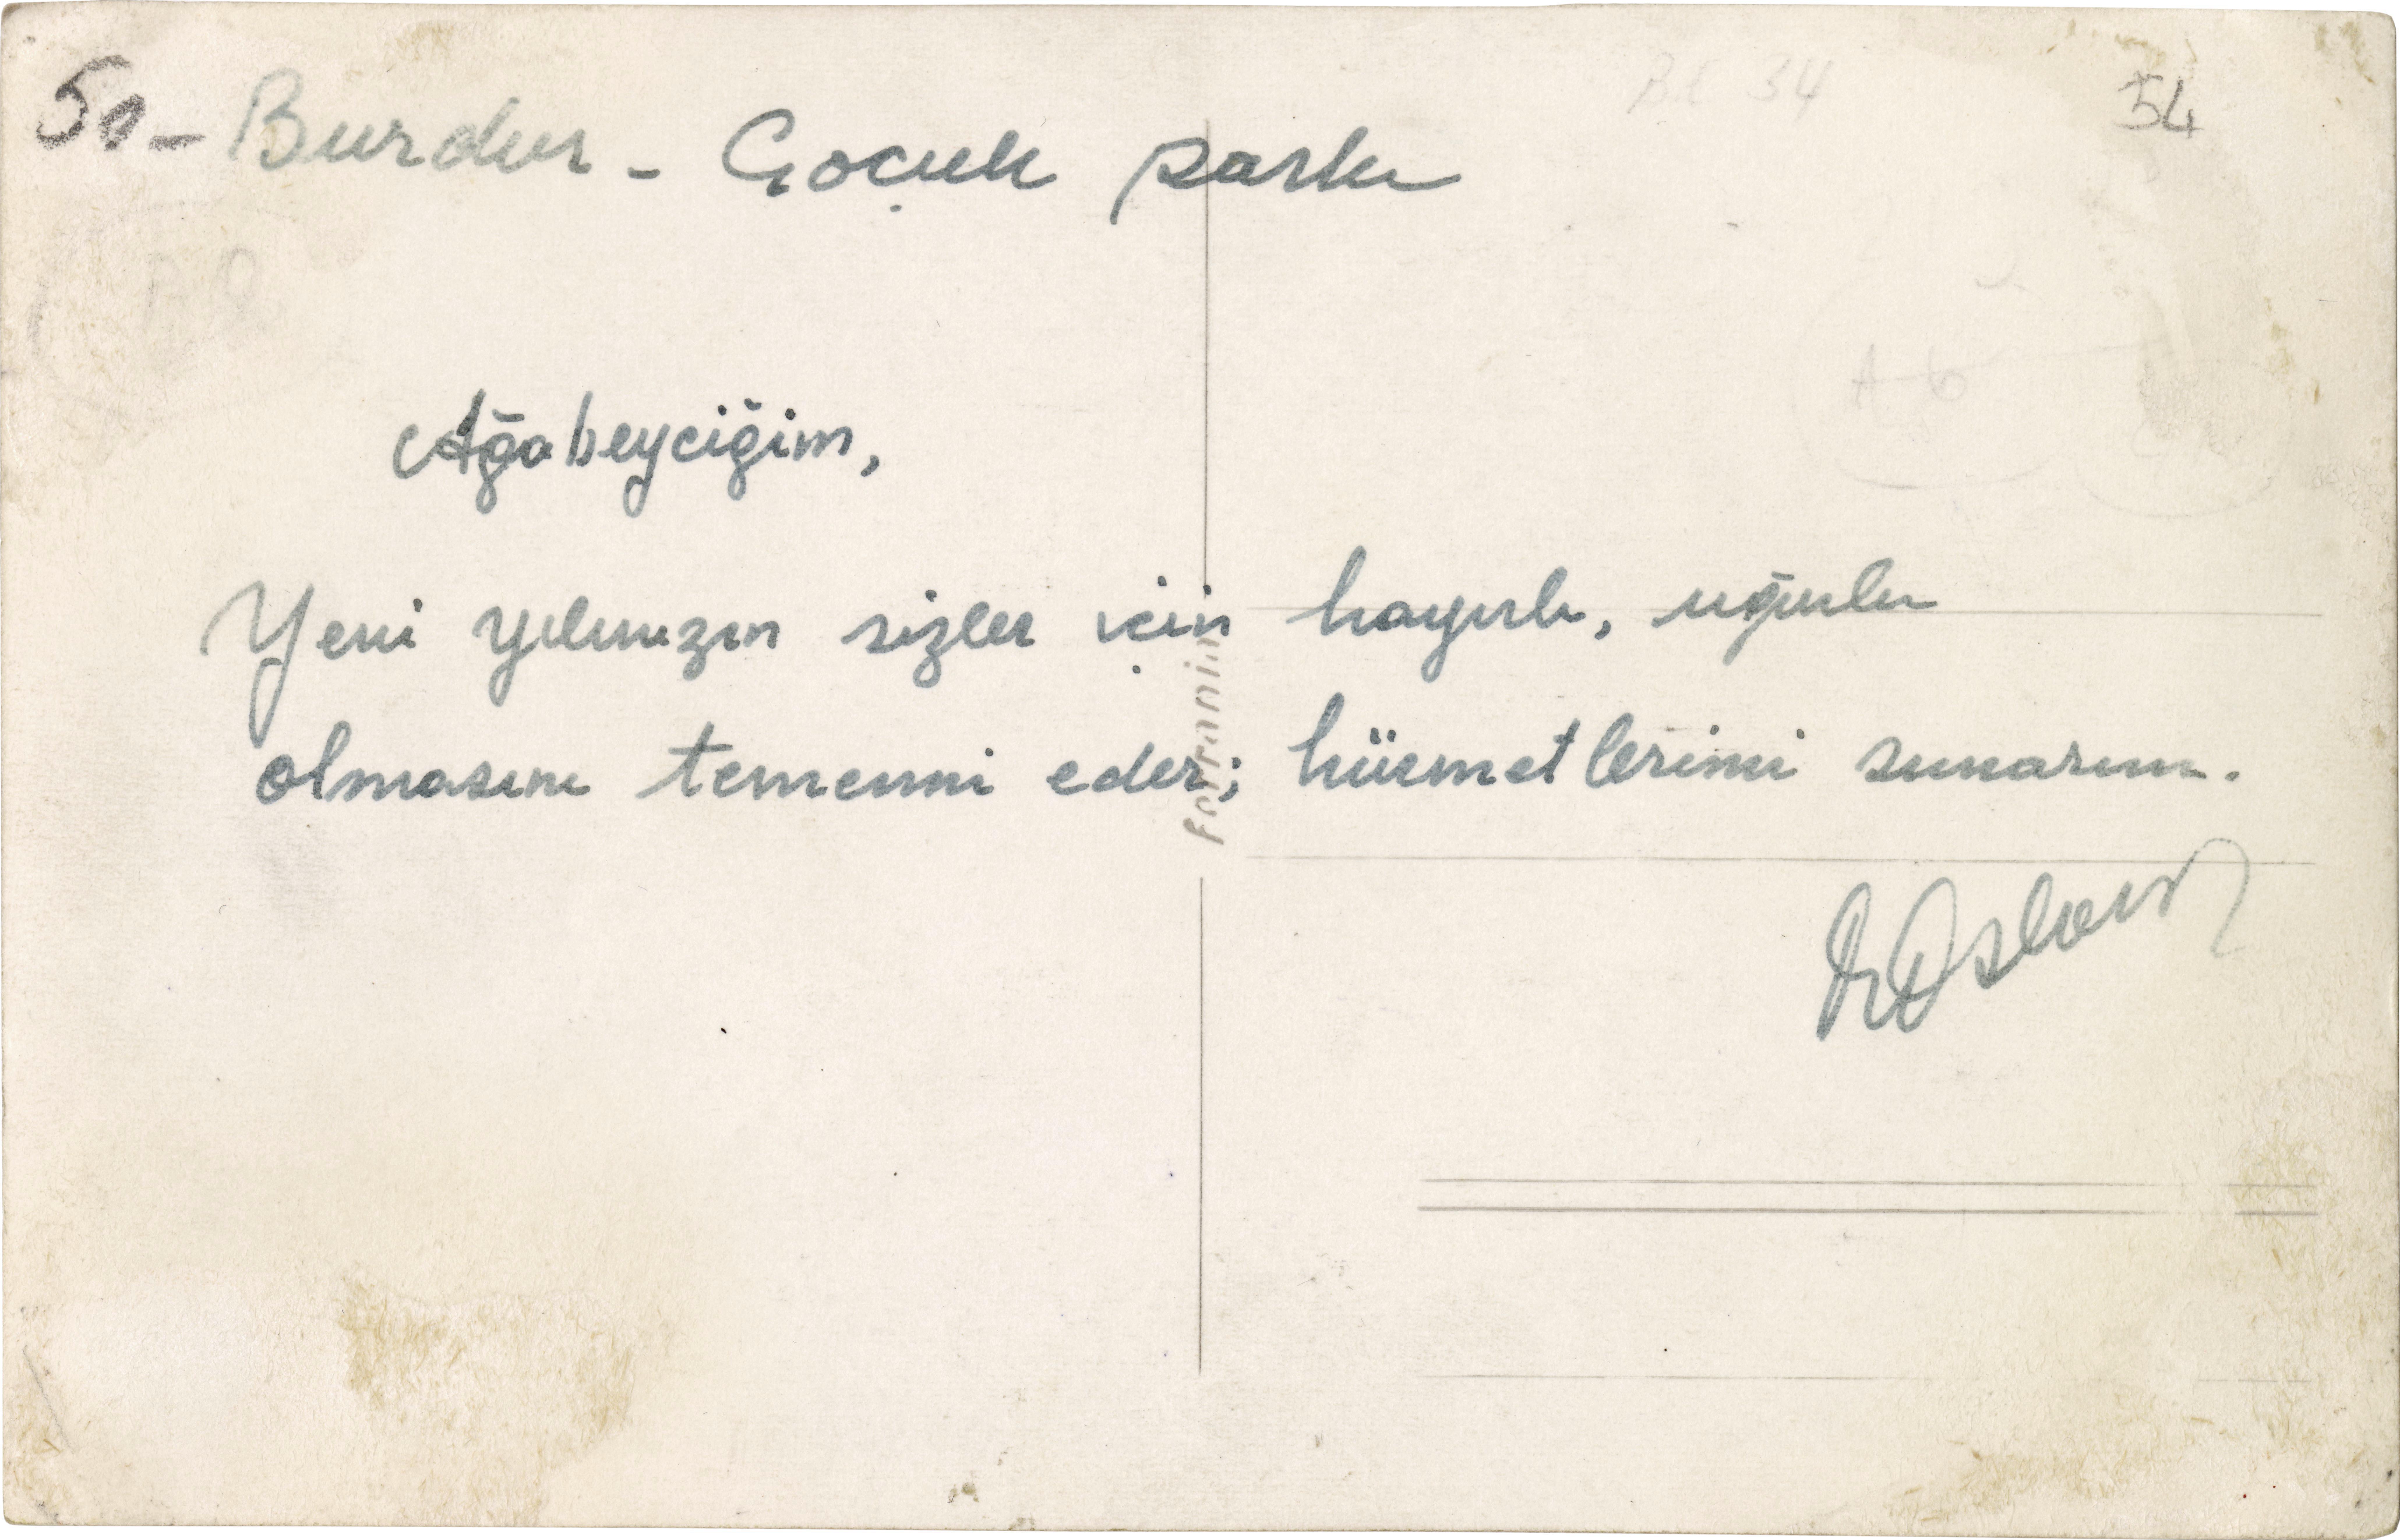 50 - Burdur - Çocuk parkı
54
Ağabeyciğim,
Yeni yılınızın sizler için hayırlı, uğurlu
olmasını temenni eder; hürmetlerimi sunarım.
Ferrania